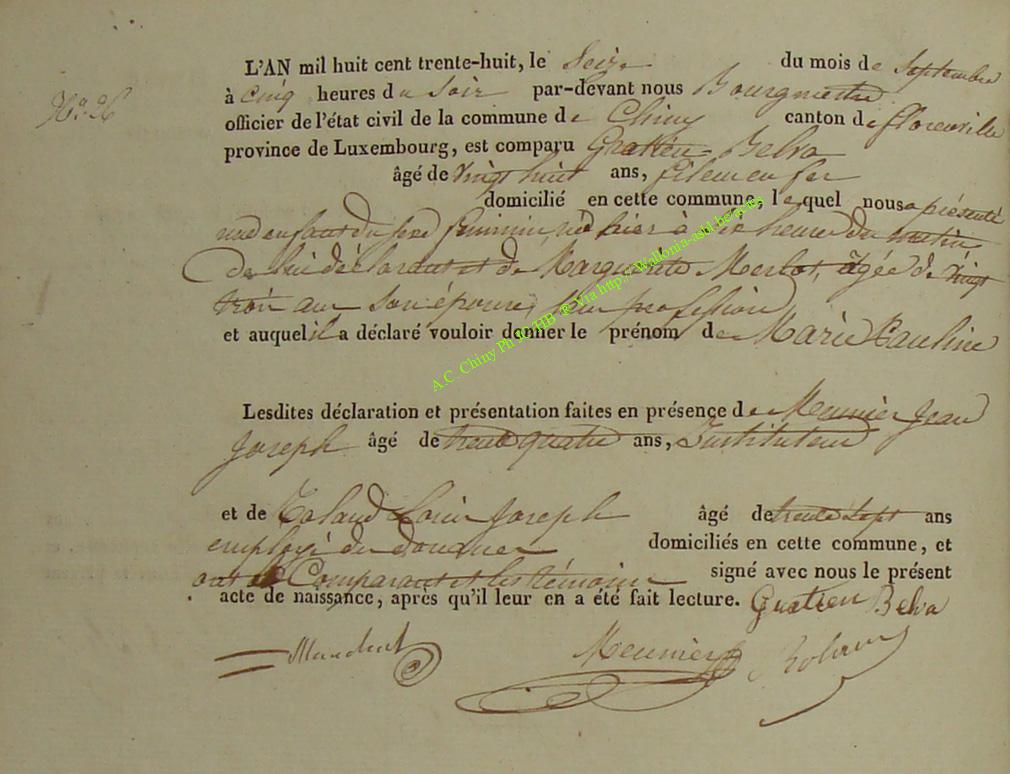 L'AN mil huit cent trente-huit, le Seize du mois de Septembre
à Cinq heures du Soir par-devant nous Bourgmestre
officier de l'état civil de la commune de Chiny canton de florenville
province de Luxembourg, est comparu Gratien Belva
âgé de vingt huit ans, fileur en fer
domicilié en cette commune, lequel nous a présenté
une enfant du sexe féminin, né hier à heures du matin
De lui déclarant et de Marguerite Merlot, âgée de vingt
trois ans son épouse, sans profession
et auquel il a déclaré vouloir donner le prénom de Marie Pauline
Lesdites déclaration et présentation faites en présence de Meunier Jean
Joseph âgé de trente quatre ans, Instituteur
et de Roland Louis Joseph âgé de trente sept ans
employé des douanes domiciliés en cette commune, et
ont Comparant et les témoins signé avec nous le présent
acte de naissance, après qu'il leur en a été fait lecture. Gratien Belva
Meunier Roland
A.C. Chiny Ph via http://Wallonia-asbl.be/